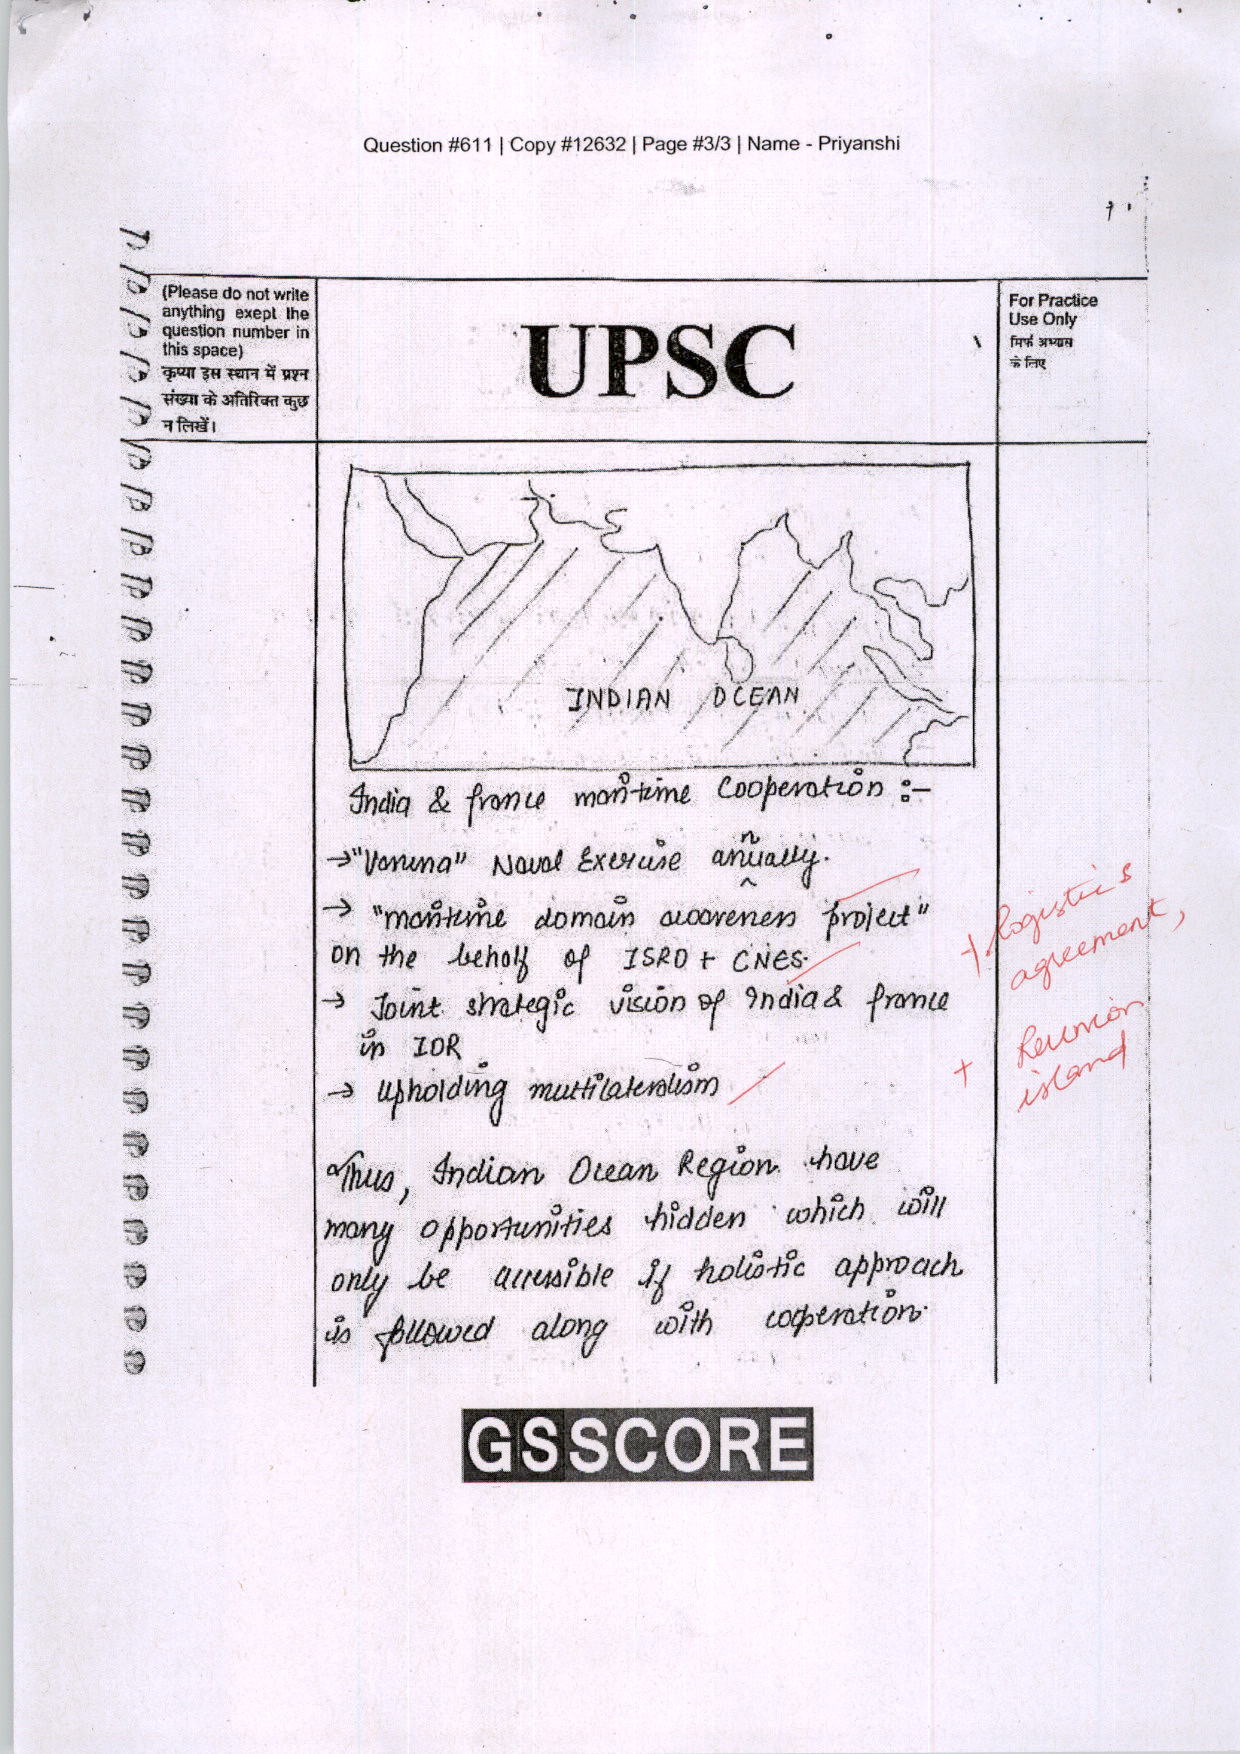 Question #611 | Copy #12632 | Page #3/3 | Name - Priyanshi
(Please do not write
anything exept the
question number in
this space)
कृप्या इस स्थान में प्रश्न
संख्या के अतिरिक्त कुछ
न लिखें।
UPSC
For Practice
Use Only
सिर्फ अभ्यास
के लिए
INDIAN OCEAN
India & france maritime Cooperation :-
→ "Varuna" Naval Exercise annually.
→ "maritime domain awareness project"
on the behalf of ISRO + CNES.
→ Joint strategic vision of India & france
in IOR
→ upholding multilateralism
+ logistics
agreement,
+ Reunion
island
Thus, Indian Ocean Region have
many opportunities hidden which will
only be accessible if holistic approach
is followed along with cooperation.
GSSCORE